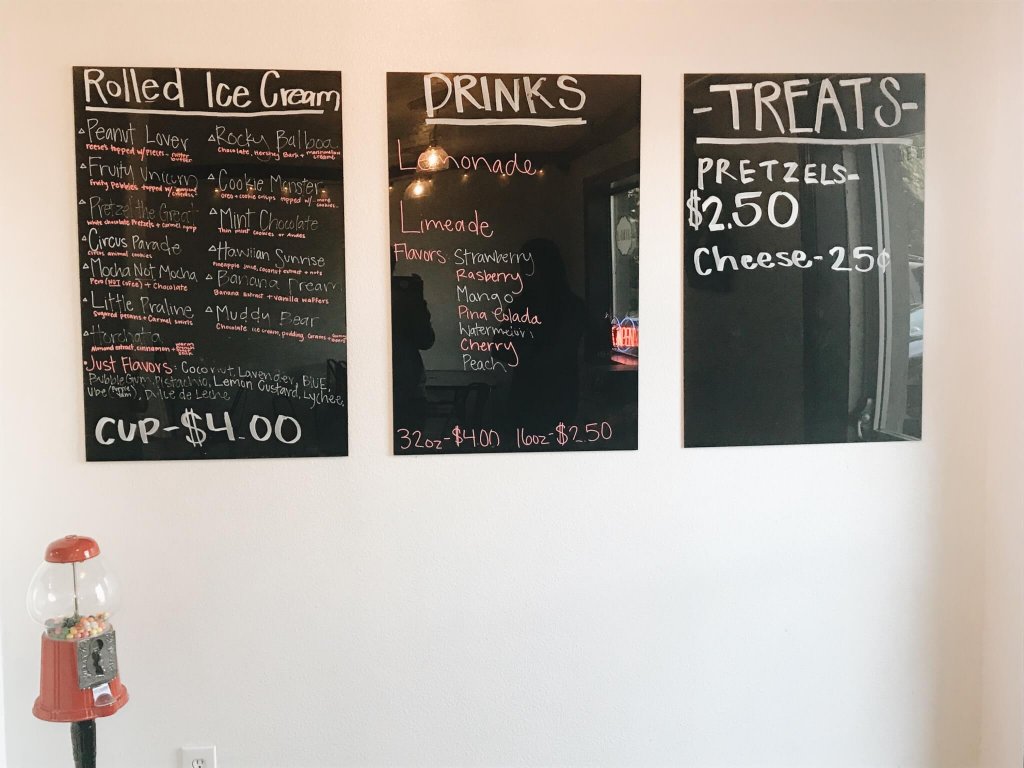 Rolled Ice Cream
Peanut Lover
reese's topped w/pieces + nutter butter
Fruity Unicorn
Fruity Pebbles + topped w/
Pretzel the Great
white chocolate Pretzels + Carmel syrup
Circus Parade
circus animal cookies
Mocha Not Mocha
Pero (NOT COFFEE) + Chocolate
Little Praline
Sugared pecans + Carmel swirls
Horchata
Almond extract, cinnamon +
Rocky Balboa
Chocolate, Hershey Bark + marshmallow creme
Cookie Monster
oreo + cookie crisps topped w/ more cookies
Mint Chocolate
Thin mint cookies or Andes
Hawiian Sunrise
Pineapple juice, coconut extract + nuts
Banana Dream
Banana Extract + Vanilla waffers
Muddy Bear
Chocolate ice cream, pudding, Grams + Gummy Bears
Just Flavors: Coconut, Lavender, BlUE,
BubbleGum, Pistachio, Lemon Custard, Lychee,
Ube (Purple Yam), Dulce de Leche
CUP-$4.00
DRINKS
Lemonade
Limeade
Flavors Strawberry
Rasberry
Mango
Pina Colada
Watermelon
Cherry
Peach
32oz-$4.00 16oz-$2.50
-TREATS-
PRETZELS-
$2.50
Cheese-25¢